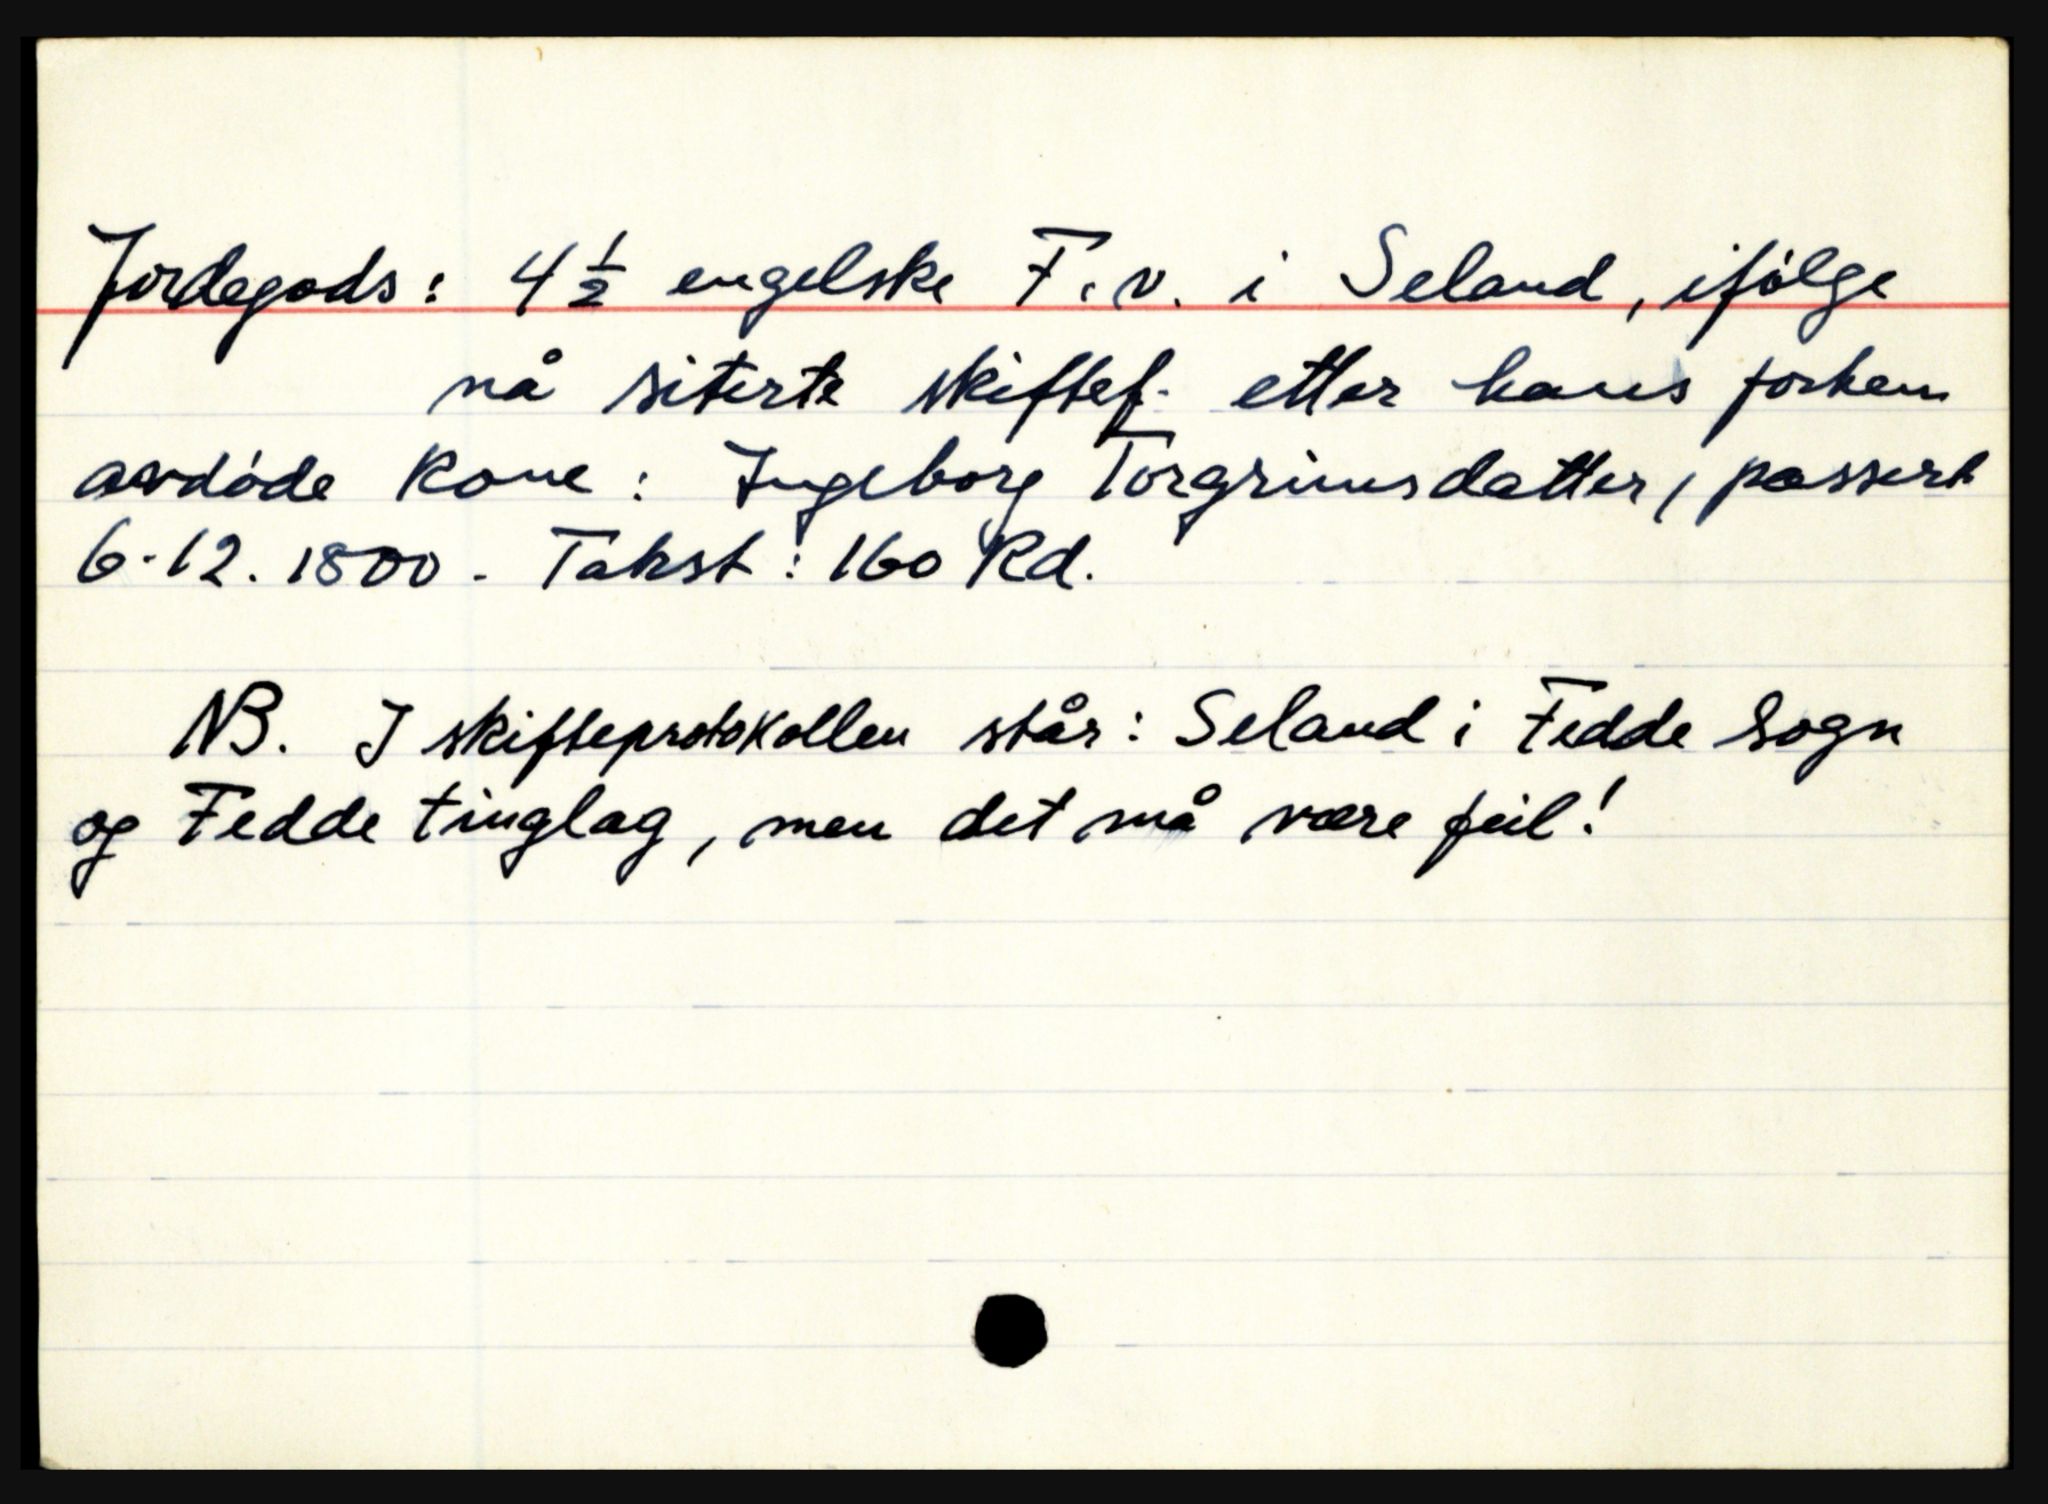 Jordegods: 4 1/2 engelske F.v. i Seland, ifølge
nå siterte skiftef. etter hans forhen
avdøde kone: Ingeborg Torgrimsdatter, passert
6.12.1800. Takst: 160 Rd.
NB. I skifteprotokollen står: Seland i Fedde sogn
og Fedde tinglag, men det må være feil!